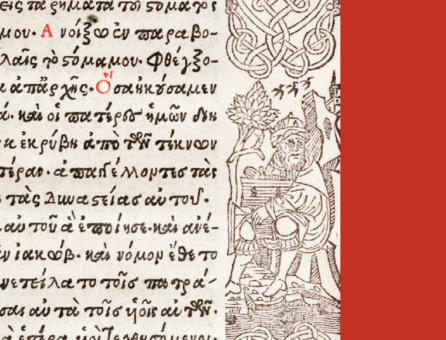 εἰς τὰ ῥήματα τοῦ στόματός
μου· Ἀνοίξω ἐν παραβο-
λαῖς τὸ στόμα μου· Φθέγξο-
ἀπ᾽ ἀρχῆς· Ὅσα ἠκούσαμεν
καὶ οἱ πατέρες ἡμῶν διη
κ ἐκρύβη ἀπὸ τῶν τέκνων
τέραν· ἀπαγγέλλοντες τὰς
τὰς δυναστείας αὐτοῦ·
αὐτοῦ ἃ ἐποίησε· καὶ ἀνέ-
ν ἰακώβ· καὶ νόμον ἔθετο
νετείλατο τοῖς πατρά-
σαι αὐτὰ τοῖς υἱοῖς αὐτῶν·
ἑτέρα